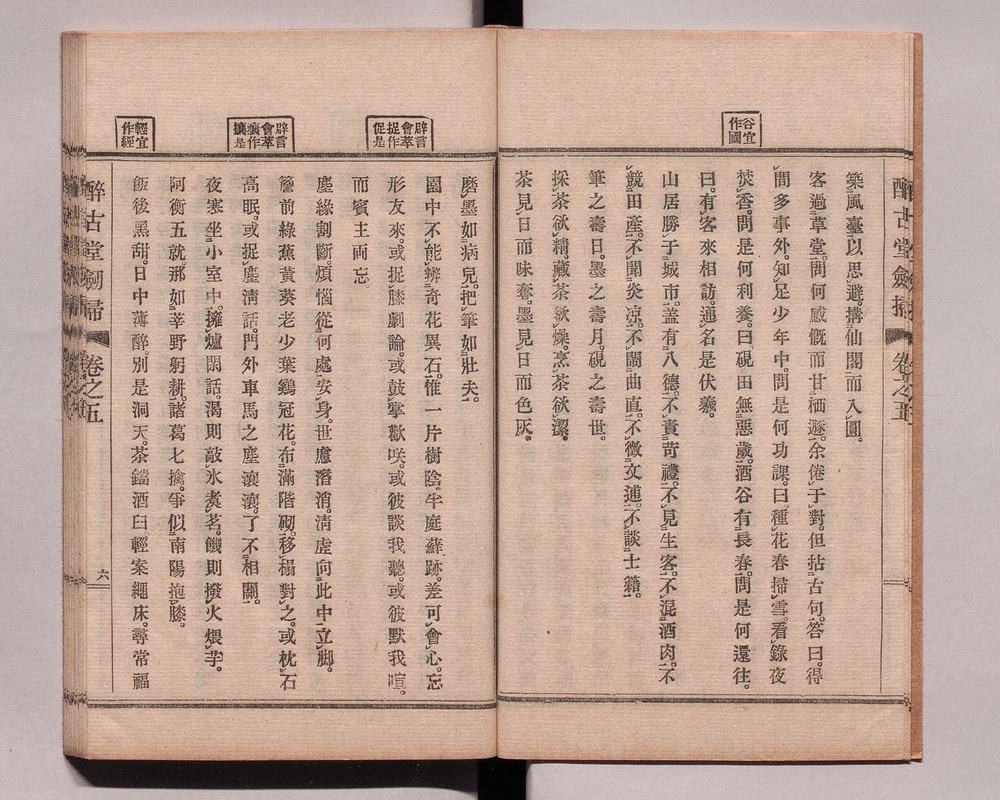 醉古堂劍掃 卷之五
谷宜作國
築風臺以思避。搆仙閣而入圓。
客過草堂。問何感慨而甘栖遯。余倦于對。但拈古句。答曰。得
間多事外。知足少年中。問是何功課。曰。種花春掃雪。看籙夜
焚香。問是何利養。曰。硯田無惡歲。酒谷有長春。問是何還往。
曰。有客來相訪。通名是伏羲。
山居勝于城市。蓋有八德。不責苛禮。不見生客。不混酒肉。不
競田產。不聞炎涼。不鬧曲直。不徵文逋。不談士籍。
筆之壽日。墨之壽月。硯之壽世。
採茶欲精。藏茶欲燥。烹茶欲潔。
茶見日而味奪。墨見日而色灰。
辟言會萃捉作促是
辟言會萃瀼作攘是
輕宜作經
磨墨如病兒。把筆如壯夫。
園中不能辨奇花異石。惟一片樹陰。半庭蘚跡。差可會心。忘
形友來。或捉膝劇論。或鼓掌歡咲。或彼談我聽。或彼默我喧。
而賓主両忘。
塵緣割斷。煩惱從何處安身。世慮潛消。清虛向此中立脚。
簷前綠蕉黃葵。老少葉。鷄冠花。布滿階砌。移榻對之。或枕石
高眠。或捉塵清話。門外車馬之塵瀼瀼。了不相關。
夜寒坐小室中。擁爐閑話。渴則敲氷煮茗。饑則撥火煨芋。
阿衡五就。那如莘野躬耕。諸葛七擒。爭似南陽抱膝。
飯後黑甜。日中薄醉。別是洞天。茶鐺酒臼。輕案繩床。尋常福
醉古堂劍掃 卷之五
六